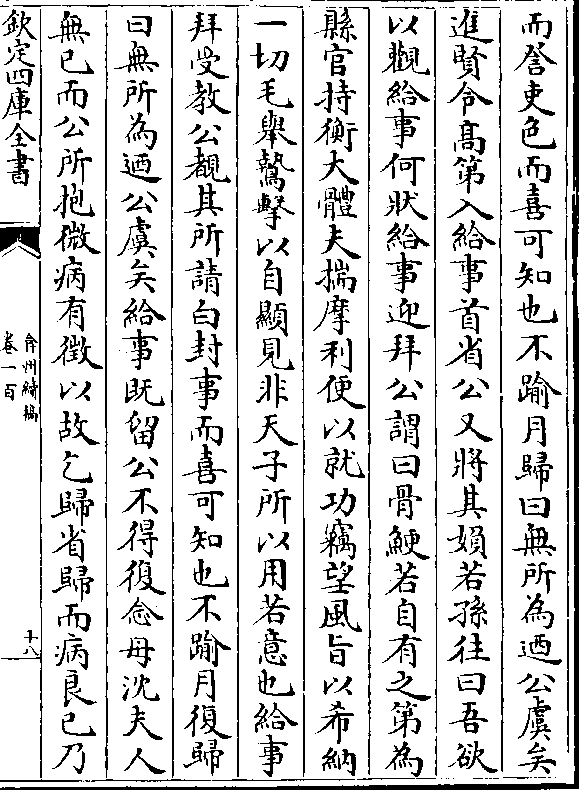 而詧吏色而喜可知也不踰月歸曰無所為迺公虞矣
進賢令高第入給事首省公又將其媍若孫往曰吾欲
以觀給事何狀給事迎拜公謂曰骨鯁若自有之第為
縣官持衡大體夫揣摩利便以就功竊望風旨以希納
一切毛舉鷙擊以自顯見非天子所以用若意也給事
拜受教公覩其所請白封事而喜可知也不踰月復歸
曰無所為迺公虞矣給事既留公不得復念母沈夫人
無已而公所抱微病有徴以故乞歸省歸而病良已乃
欽定四庫全書
弇州續稿
卷一百
十八